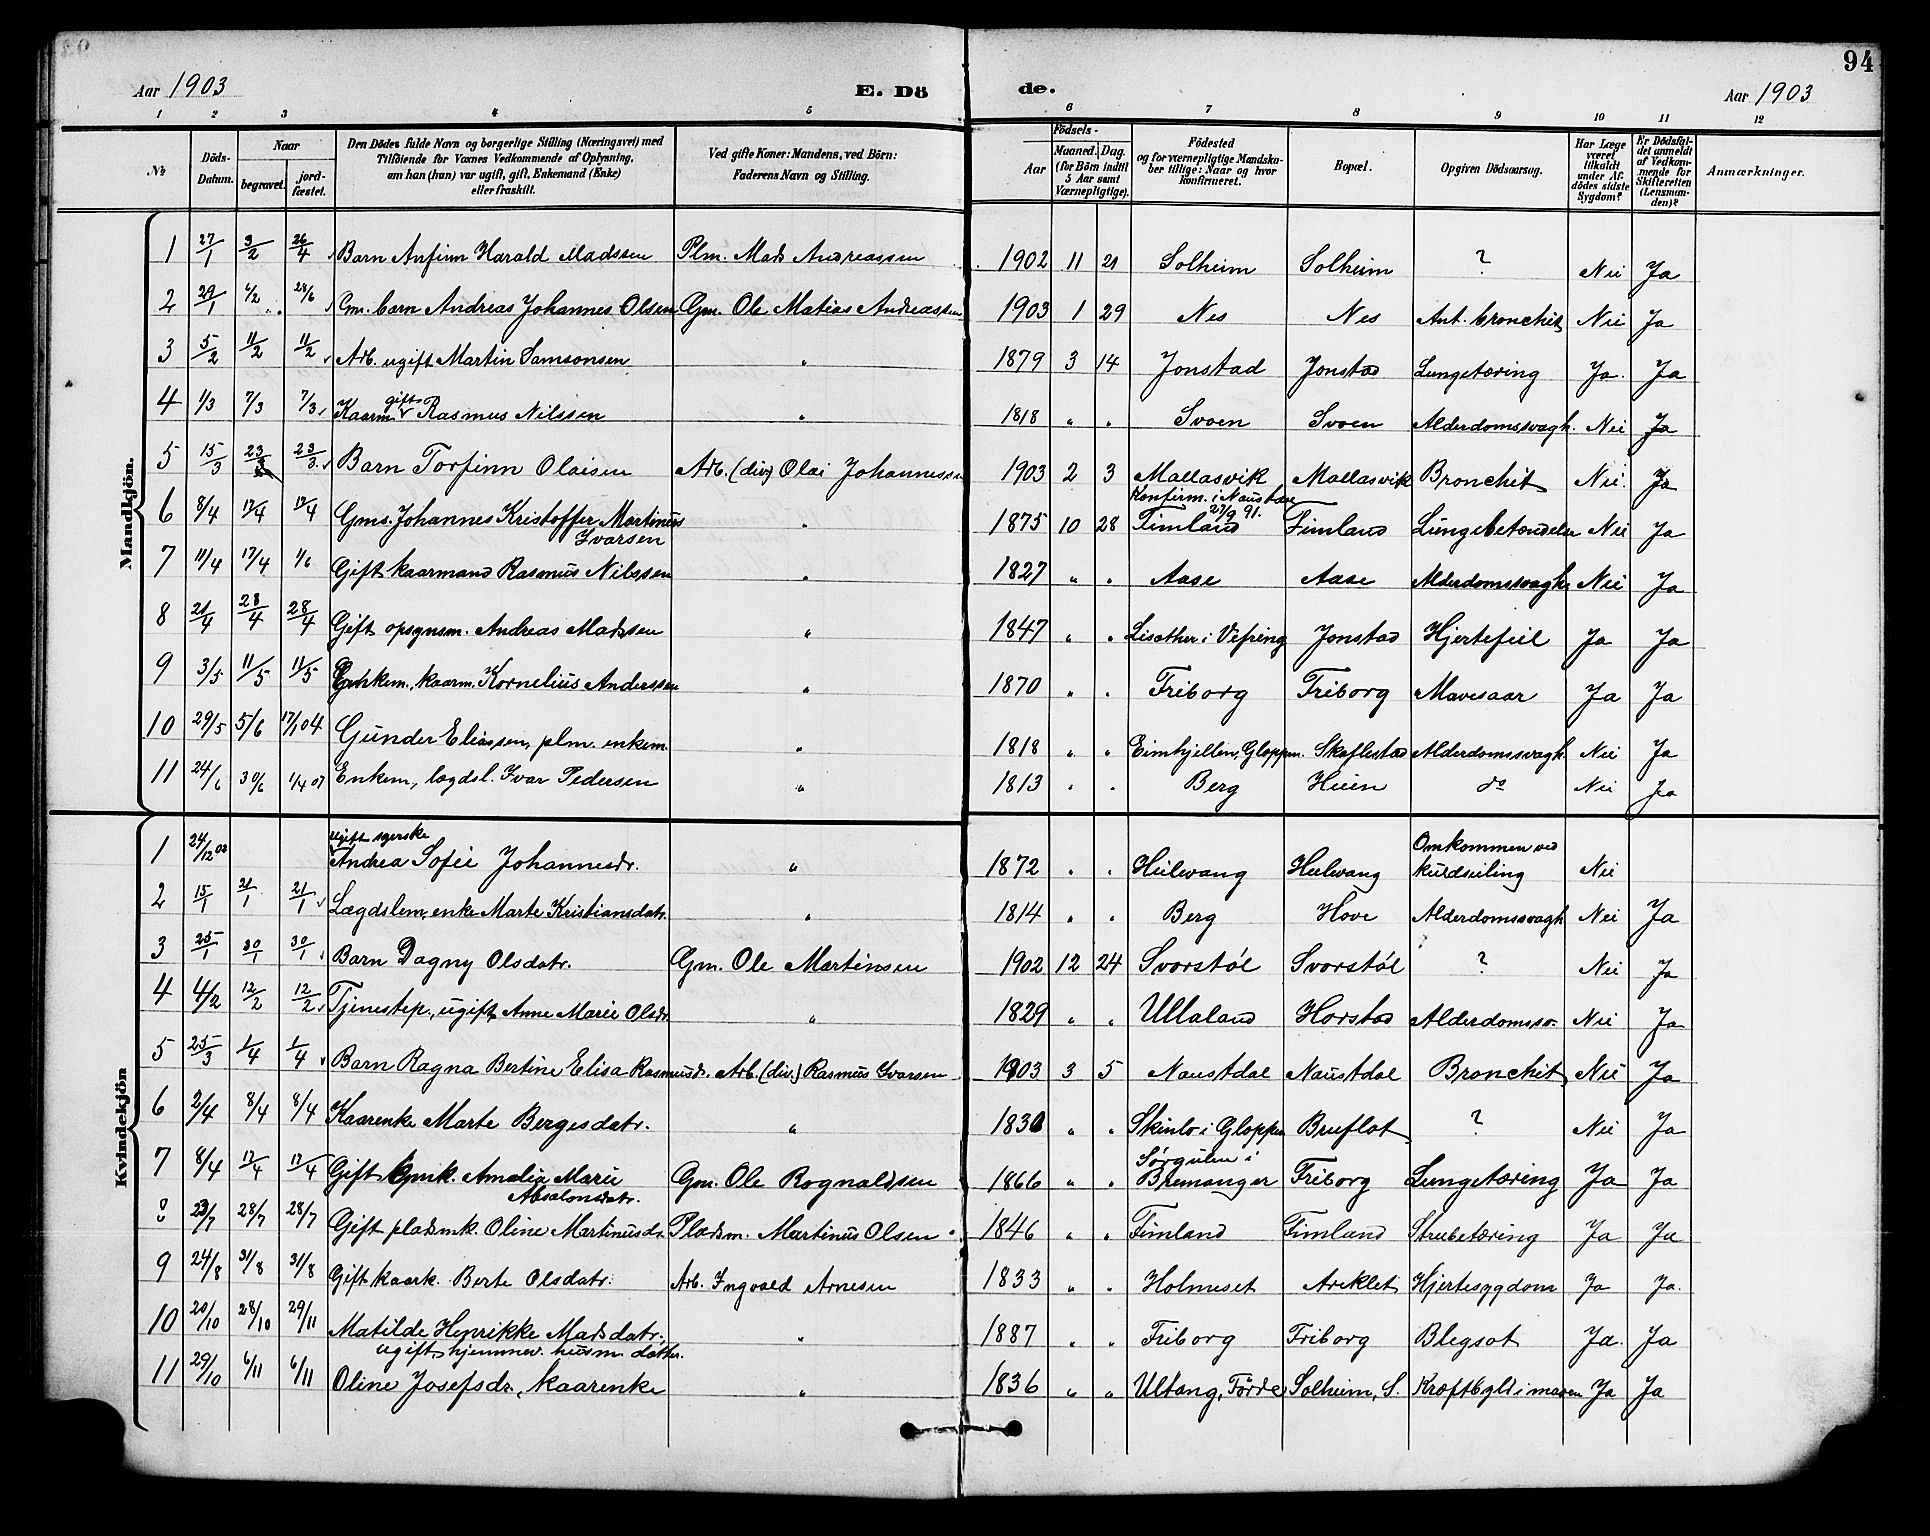 94
Aar 1903 E. Dö de. Aar 1903
1 2 3 4 5 6 7 8 9 10 11 12
No
Döds-Datum.
Naar
begravet.
jordfæstet.
Den Dödes fulde Navn og borgerlige Stilling (Næringsvei) med
Tilföiende for Voxnes Vedkommende af Oplysning,
om han (hun) var ugift, gift, Enkemand (Enke)
eller fraskilt.
Ved gifte Koner: Mandens, ved Börn:
Faderens Navn og Stilling.
Födsels-
Aar
Maaned. Dag.
(for Börn indtil
5 Aar samt
Værnepligtige).
Födested
og for værnepligtige Mandskaber tillige: Naar og hvor
konfirmeret.
Bopæl.
Opgiven Dödsaarsag.
Har Læge
været
tilkaldt
under Afdödes sidste
Sygdom?
Er Dödsfaldet anmeldt
af Vedkommende for
Skifteretten
(Lensmanden)?
Anmærkninger.
Mandkjön.
1 27/1 3/2 26/4 Barn Anfinn Harald Madssen Plm. Mads Andreassen 1902 11 21 Solheim Solheim ? Nei Ja
2 29/1 6/2 28/6 Gm. barn Andreas Johannes Olsen Gm. Ole Matias Andreassen 1903 1 29 Nes Nes Ant. bronchit Nei Ja
3 5/2 11/2 11/2 Arb. ugift Martin Samsonsen " 1879 3 14 Jonstad Jonstad Lungetæring Ja. Ja
4 1/3 7/3 7/3 Kaarm. gift Rasmus Nilssen " 1818 " " Svoen Svoen Alderdomssvagh. Nei Ja
5 15/3 23/3 23/3 Barn Torfinn Olaisen Arb. (div) Olai Johannessen 1903 2 3 Mallasvik Mallasvik Bronchit Nei. Ja
6 8/4 17/4 17/4 Gms. Johannes Kristoffer Martinus Ivarsen " 1875 10 28 Konfirm. i Naustdal 27/9 91. Fimland Fimland Lungebetændelse Nei Ja
7 11/4 17/4 1/6 Gift kaarmand Rasmus Nilssen " 1827 " " Aase Aase Alderdomssvagh Nei Ja
8 21/4 28/4 28/4 Gift opsynsm. Andreas Madssen " 1847 " " Lisether i Vefring Jonstad Hjertefeil Ja Ja
9 3/5 11/5 11/5 Enkem., kaarm. Kornelius Anderssen " 1870 " " Friborg Friborg Mavesaar Ja Ja
10 29/5 5/6 17/1 04 Gunder Eliassen, plm. enkem. " 1818 " " Eimhjellen, Gloppen. Skaflestad Alderdomssvagh. Nei Ja
11 24/6 30/6 1/4 07 Enkem, lægdsl. Ivar Pedersen " 1813 " " Berg Huin do Nei Ja
Kvindekjön
1 24/12 02 ugift syerske Andrea Sofie Johannesdr. " 1872 " " Hulwang Hulwang Omkommen ved kuldseiling Nei
2 15/1 21/1 21/1 Lægdslem, enke Marte Kristiansdatr. " 1814 " " Berg Hove Alderdomssvagh Nei Ja
3 25/1 30/1 30/1 Barn Dagny Olsdatr. Gm. Ole Martinsen 1902 12 24 Svorstøl Svorstøl ? Nei Ja
4 4/2 12/2 12/2 Tjenestep., ugift Anne Marie Olsdr " 1829 " " Ullaland Horstad Alderdomssv. Nei Ja
5 25/3 1/4 1/4 Barn Ragna Bertine Elisa Rasmusdr. Arb. (div.) Rasmus Ivarsen 1903 3 5 Naustdal Naustdal Bronchit Nei Ja
6 2/4 8/4 8/4 Kaarenke Marte Bergesdatr. " 1830 " " Skinlo i Gloppen Bruflot ? Nei Ja
7 8/4 17/4 17/4 Gift Gmk. Amalia Marie Absalonsdatr. Gm. Ole Rognaldsen 1866 " " Sørgulen i Bremanger Friborg Lungetæring Ja Ja
8 23/7 28/7 28/7 Gift pladsmk. Oline Martinusdr. Pladsm. Martinus Olsen 1846 " " Fimland Fimland Strubetæring Ja Ja
9 24/8 31/8 31/8 Gift kaark. Berte Olsdatr. Arb. Ingvald Arnesen 1833 " " Holmeset Areklet Hjertesygdom Ja Ja.
10 20/10 28/10 29/11 Matilde Henrikke Madsdatr., ugift hjemmev. husm. datter. " 1887 " " Friborg Friborg Blegsot Ja. Ja
11 29/10 6/11 6/11 Oline Josefsdr., kaarenke " 1836 " " Ultang, Førde Solheim, S. Kræftbyld i maven Ja Ja